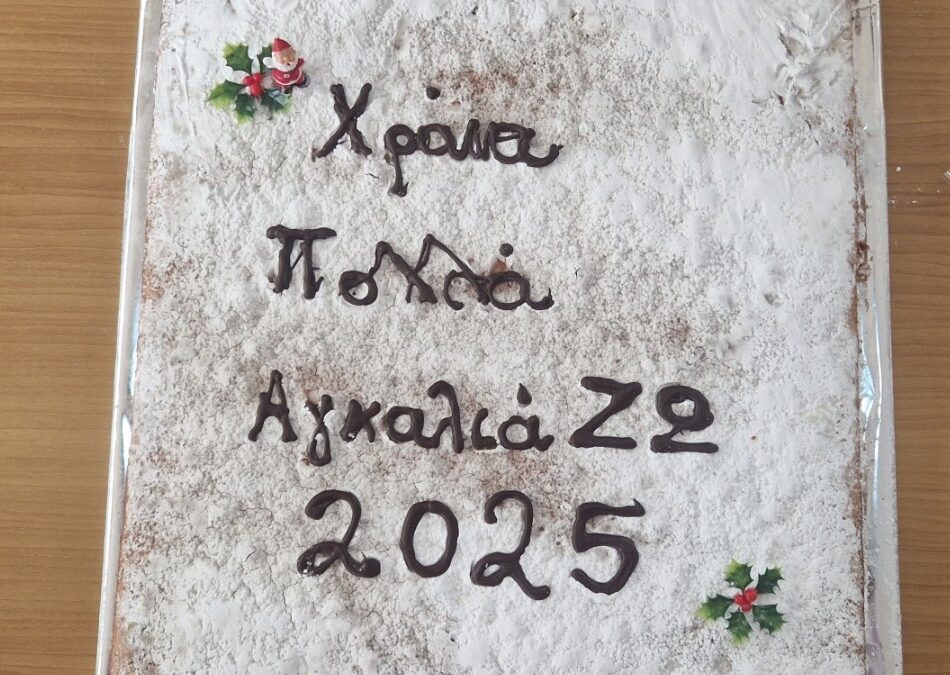 Χρόνια
Πολλά
Αγκαλιά ΖΩ
2025